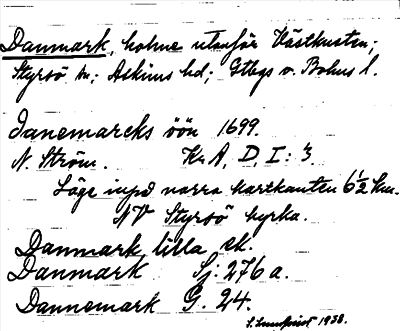 Danmark, holme utanför Västkusten;
Styrsö sn; Askims hd; Gtbgs o. Bohus l.
Danemarcks öön 1699.
N. Ström. Kr A, D, I: 3.
Läge invid norra kartkanten 6½ km.
NV Styrsö kyrka.
Danmark, lilla ek.
Danmark Sj. 276 a.
Dannemark G. 24.
1938.